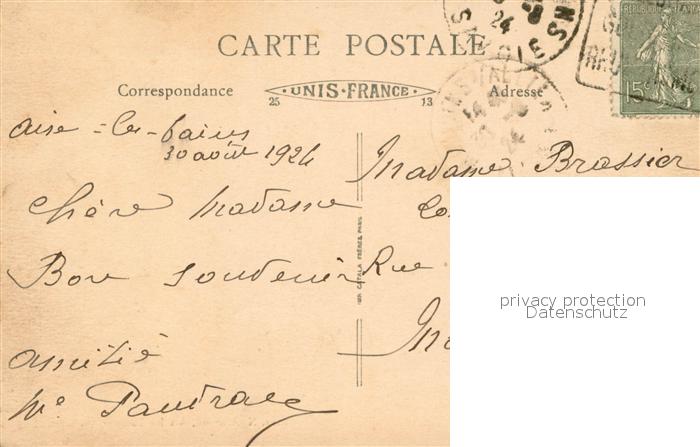 CARTE POSTALE
Correspondance
UNIS-FRANCE
25 13
Adresse
REPUBLIQUE FRANCAISE
15c
24
SAVOIE
Aixe-les-bains
30 août 1924
Chère Madame
Bon souvenir
amitié
Me
Madame Brossier
Rue
IMP. CATALA FRÈRES, PARIS
privacy protection
Datenschutz